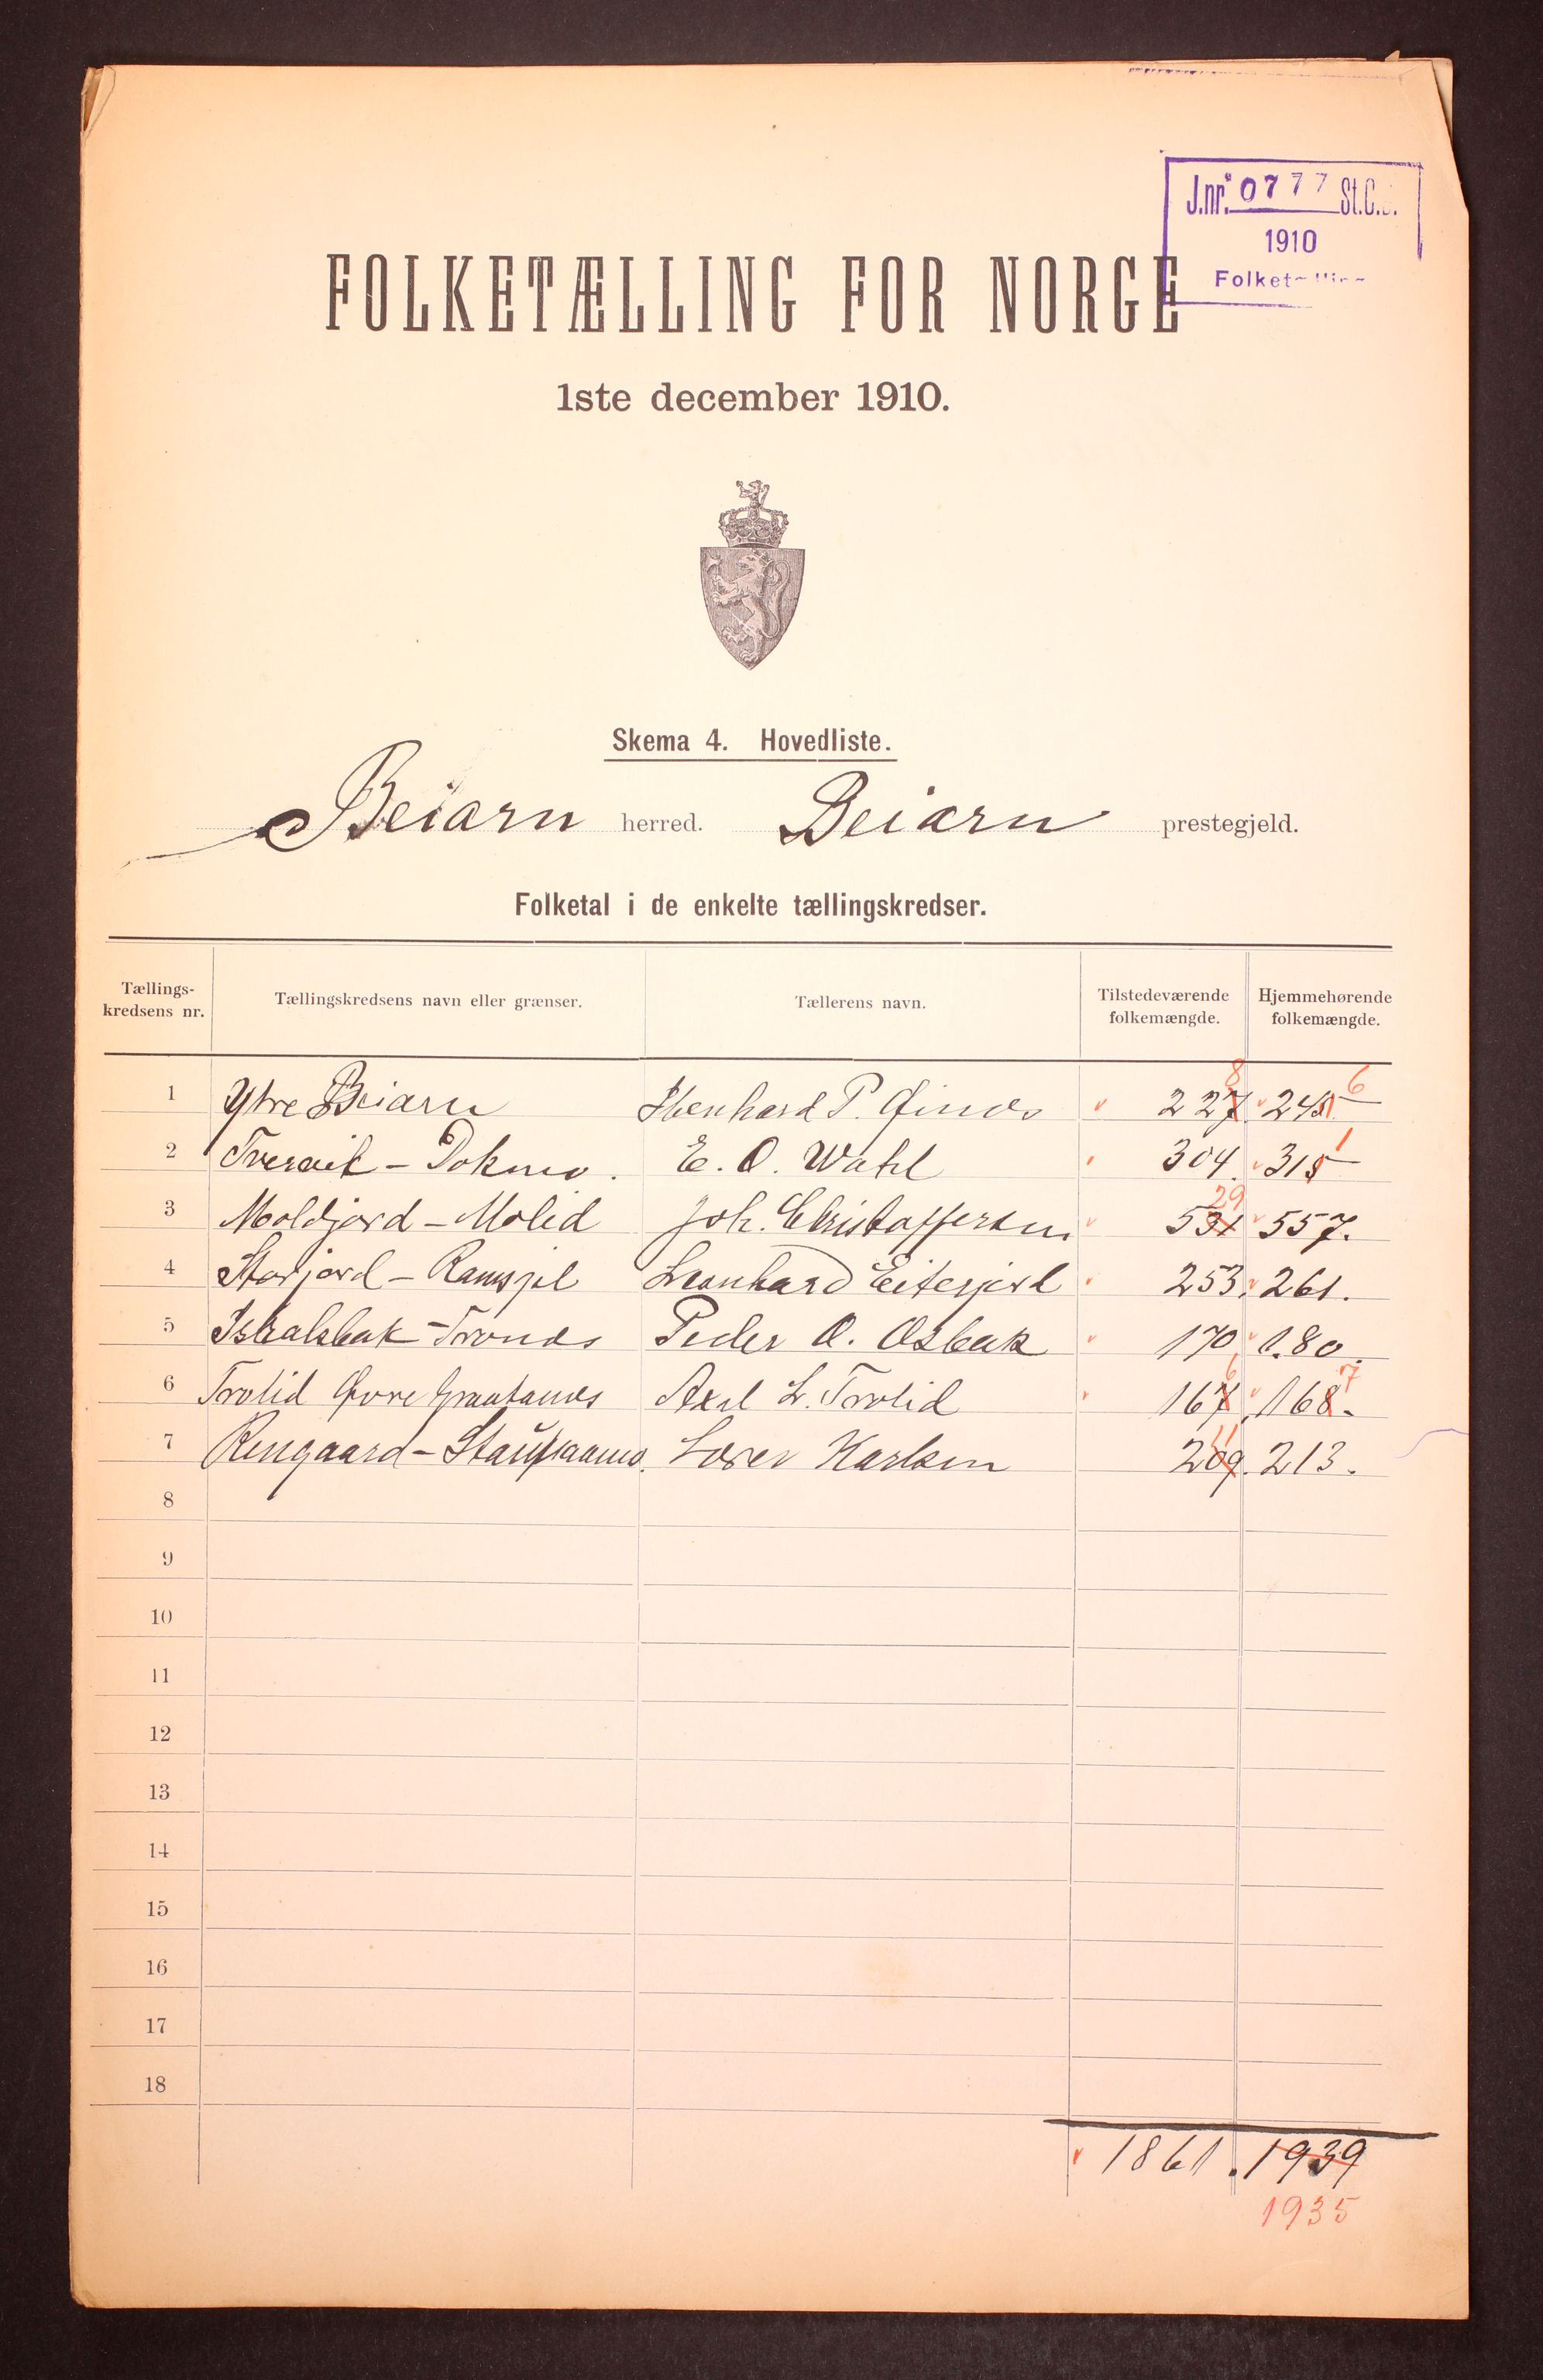 J.nr. 0777 St.C.
1910
FOLKETÆLLING FOR NORGE
1ste december 1910.
Skema 4. Hovedliste.
Beiarn herred. Beiarn prestegjeld.
Folketal i de enkelte tællingskredser.
Tællings-kredsens nr. Tællingskredsens navn eller grænser. Tællerens navn. Tilstedeværende folkemængde. Hjemmehørende folkemængde.
8 6
1 Ytre Beiarn P. 227. 245
1
2 Tvervik - Dokmo. E. O. Wahl 304. 315
29
3 Moldjord - Molid Joh. Christoffersen 531 557.
4 Storjord - Ramsjel Leonhard Eiterjord 253. 261.
5 Tronds Peder O. Osbak 170. 180.
6 7
6 Trolid Øvre Graatanes Axel L. Trolid 167 168.
11
7 Rengaard - Karlsen 209. 213.
8
9
10
11
12
13
14
15
16
17
18
1861. 1939
1935